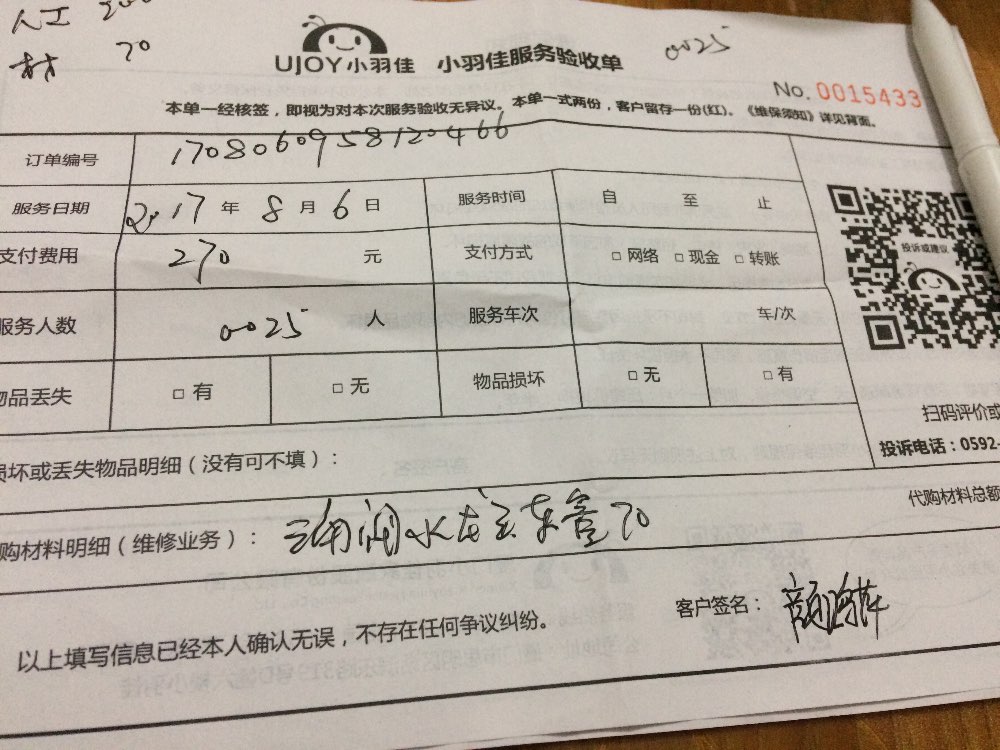 人工 200
材 70
UJOY小羽佳 小羽佳服务验收单
0025
No. 0015433
本单一经核签，即视为对本次服务验收无异议。本单一式两份，客户留存一份(红)。《维保须知》详见背面。
订单编号 1708060958120466
服务日期 2017 年 8 月 6 日 服务时间 自 至 止
支付费用 270 元 支付方式 □ 网络 □ 现金 □ 转账
服务人数 0025 服务车次 车/次
物品丢失 □ 有 □ 无 物品损坏 □ 无 □ 有
投诉或建议
扫码评价或
投诉电话：0592-
损坏或丢失物品明细（没有可不填）：
代购材料总额
购材料明细（维修业务）： 润水龙 70
客户签名： 颜
以上填写信息已经本人确认无误，不存在任何争议纠纷。